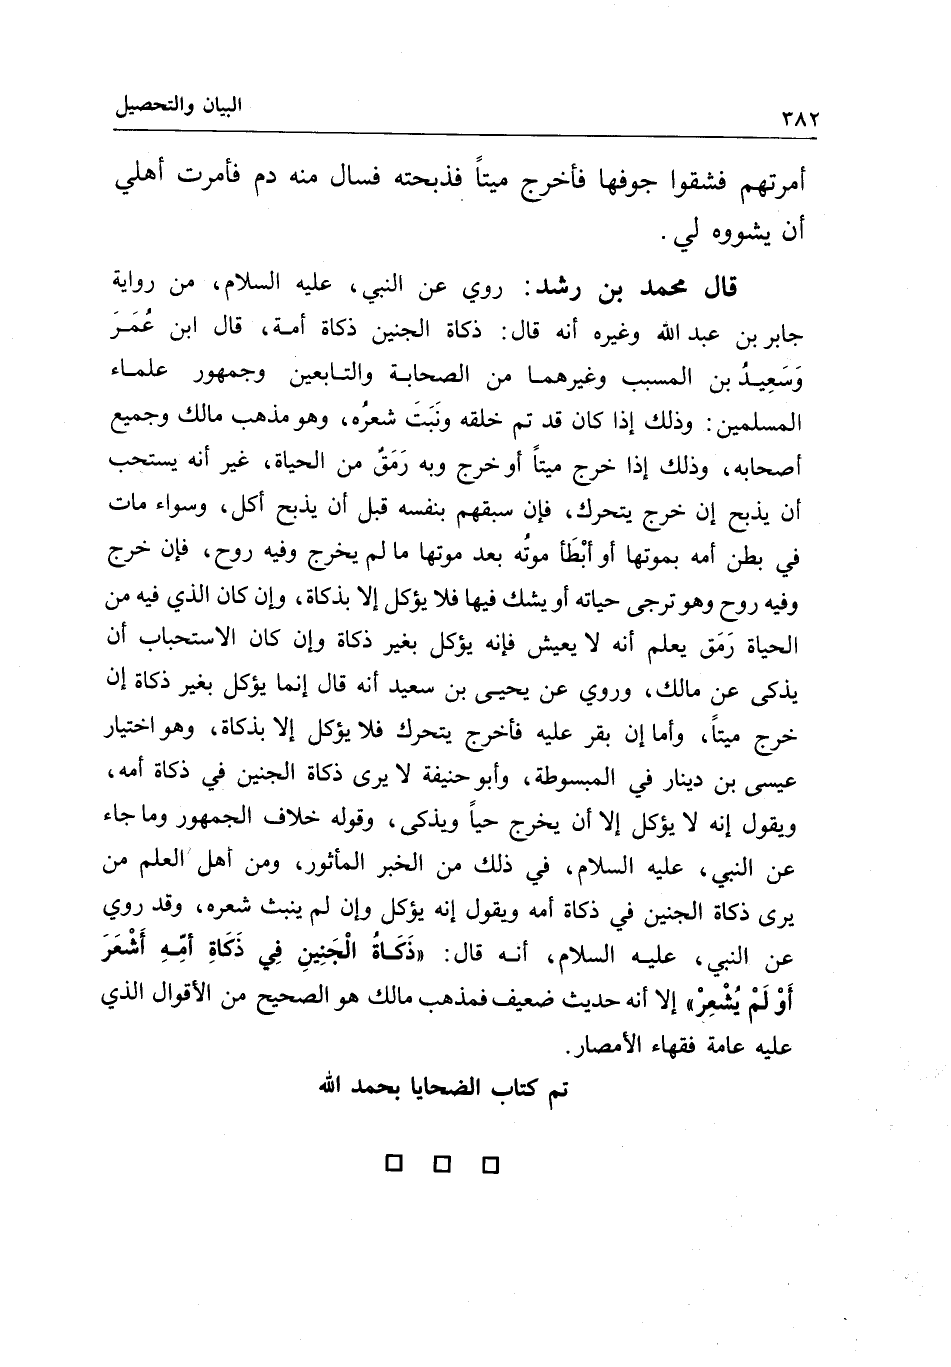 البيان والتحصيل
٣٨٢
أمرتهم فشقوا جوفها فأخرج ميتاً فذبحته فسال منه دم فأمرت أهلي
أن يشووه لي .
قال محمد بن رشد: روي عن النبي، عليه السلام، من رواية
جابر بن عبد الله وغيره أنه قال: ذكاة الجنين ذكاة أمة، قال ابن عُمَرَ
وَسَعِيدُ بن المسبب وغيرهما من الصحابة والتابعين وجمهور علماء
المسلمين: وذلك إذا كان قد تم خلقه ونَبَتَ شعرُه، وهو مذهب مالك وجميع
أصحابه، وذلك إذا خرج ميتاً أو خرج وبه رَمَقٌ من الحياة، غير أنه يستحب
أن يذبح إن خرج يتحرك، فإن سبقهم بنفسه قبل أن يذبح أكل، وسواء مات
في بطن أمه بموتها أو أبْطَأ موتُه بعد موتها ما لم يخرج وفيه روح، فإن خرج
وفيه روح وهو ترجى حياته أو يشك فيها فلا يؤكل إلا بذكاة، وإن كان الذي فيه من
الحياة رَمَق يعلم أنه لا يعيش فإنه يؤكل بغير ذكاة وإن كان الاستحباب أن
يذكى عن مالك، وروي عن يحيى بن سعيد أنه قال إنما يؤكل بغير ذكاة إن
خرج ميتاً، وأما إن بقر عليه فأخرج يتحرك فلا يؤكل إلا بذكاة، وهو اختيار
عيسى بن دينار في المبسوطة، وأبو حنيفة لا يرى ذكاة الجنين في ذكاة أمه،
ويقول إنه لا يؤكل إلا أن يخرج حياً ويذكى، وقوله خلاف الجمهور وما جاء
عن النبي، عليه السلام، في ذلك من الخبر المأثور، ومن أهل العلم من
يرى ذكاة الجنين في ذكاة أمه ويقول إنه يؤكل وإن لم ينبث شعره، وقد روي
عن النبي، عليه السلام، أنه قال: «ذَكَاةُ الْجَنِينِ فِي ذَكَاةِ أمِّهِ أَشْعَرَ
أَوْ لَمْ يُشْعِرْ» إلا أنه حديث ضعيف فمذهب مالك هو الصحيح من الأقوال الذي
عليه عامة فقهاء الأمصار.
تم كتاب الضحايا بحمد الله